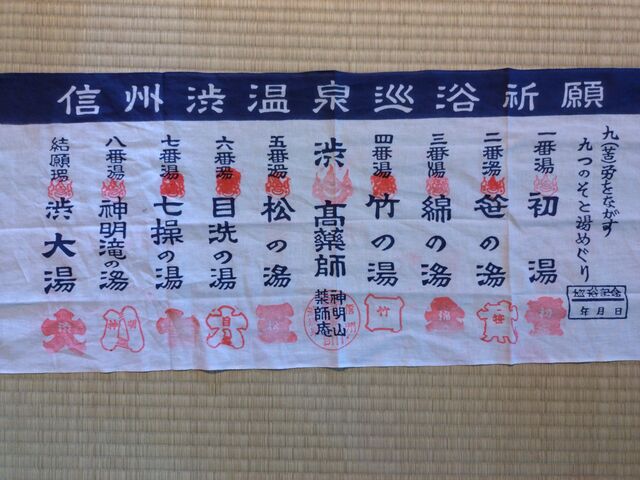 信州渋温泉巡浴祈願
九(苦)労をながす
九つのそと湯めぐり
年 月 日
一番湯 初湯
二番湯 笹の湯
三番湯 綿の湯
四番湯 竹の湯
渋高薬師 神明山薬師庵
五番湯 松の湯
六番湯 目洗の湯
七番湯 七操の湯
八番湯 神明滝の湯
結願湯 渋大湯
初
笹
綿
竹
松